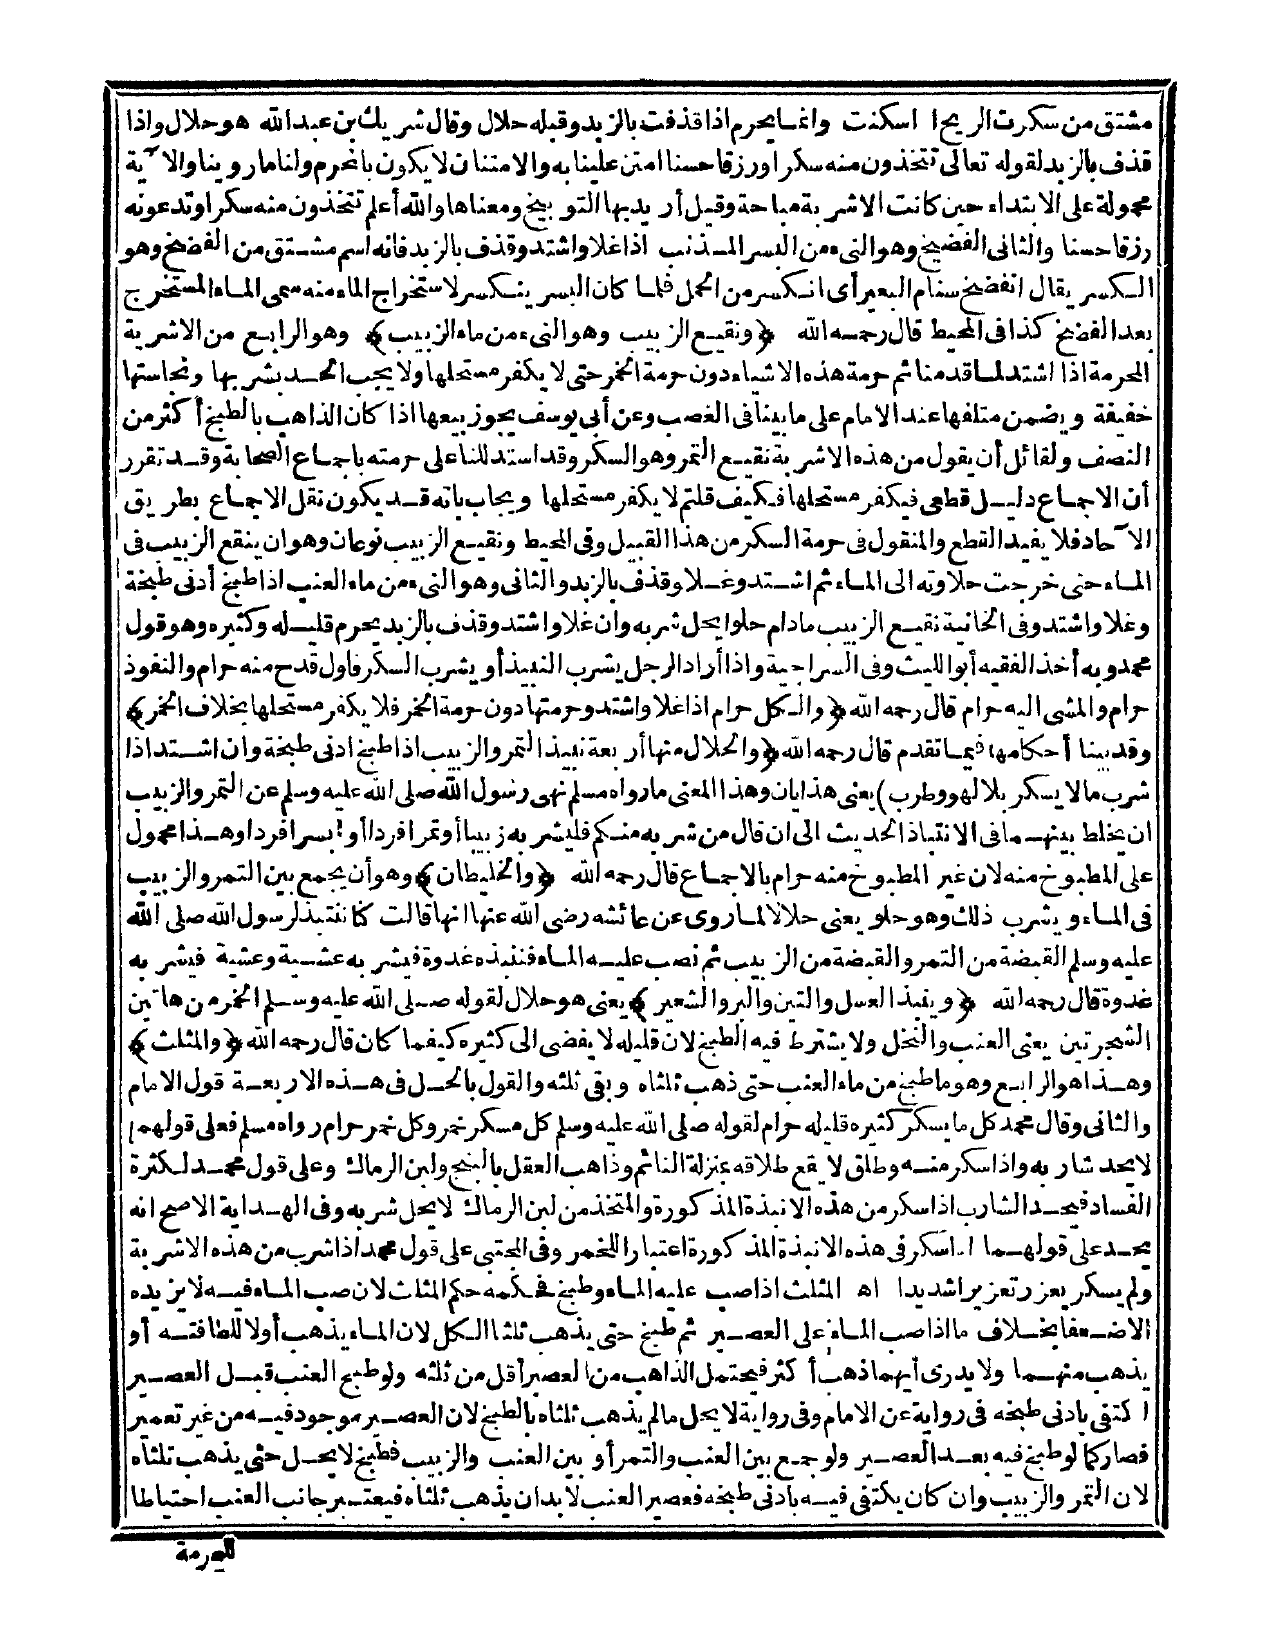 مشتق من سكرت الريح اذا سكنت وانما يحرم اذا قذفت بالزبد وقبله حلال وقال شريك بن عبد الله هو حلال واذا
قذف بالزبد لقوله تعالى تتخذون منه سكرا ورزقا حسنا امتن علينا به والامتنان لا يكون بالمحرم ولنا ما روينا والآية
محمولة على الابتداء حين كانت الاشربة مباحة وقيل أريد بها التوبيخ ومعناها والله أعلم تتخذون منه سكرا وتدعونه
رزقا حسنا والثانى الفضيخ وهو النىء من البسر المذنب اذا غلا واشتد وقذف بالزبد فانه اسم مشتق من الفضخ وهو
الكسر يقال انفضخ سنام البعير أى انكسر من الحمل فلما كان البسر ينكسر لاستخراج الماء منه سمى الماء المستخرج
بعد الفضخ كذا فى المحيط قال رحمه الله ﴿ونقيع الزبيب وهو النىء من ماء الزبيب﴾ وهو الرابع من الاشربة
المحرمة اذا اشتد لما قدمنا ثم حرمة هذه الاشياء دون حرمة الخمر حتى لا يكفر مستحلها ولا يجب الحد بشربها ونجاستها
خفيفة ويضمن متلفها عند الامام على ما بينا فى الغصب وعن أبى يوسف يجوز بيعها اذا كان الذاهب بالطبخ أكثر من
النصف ولقائل أن يقول من هذه الاشربة نقيع التمر وهو السكر وقد استدللنا على حرمته باجماع الصحابة وقد تقرر
أن الاجماع دليل قطعى فيكفر مستحلها فكيف قلتم لا يكفر مستحلها ويجاب بانه قد يكون نقل الاجماع بطريق
الآحاد فلا يفيد القطع والمنقول فى حرمة السكر من هذا القبيل وفى المحيط ونقيع الزبيب نوعان وهو ان ينقع الزبيب فى
الماء حتى خرجت حلاوته الى الماء ثم اشتد وغلا وقذف بالزبد والثانى وهو النىء من ماء العنب اذا طبخ أدنى طبخة
وغلا واشتد وفى الخانية نقيع الزبيب ما دام حلوا يحل شربه وان غلا واشتد وقذف بالزبد يحرم قليله وكثيره وهو قول
محمد وبه أخذ الفقيه أبو الليث وفى السراجية واذا أراد الرجل يشرب النبيذ أو يشرب السكر فاول قدح منه حرام والنفوذ
حرام والمشى اليه حرام قال رحمه الله ﴿والكل حرام اذا غلا واشتد وحرمتها دون حرمة الخمر فلا يكفر مستحلها بخلاف الخمر﴾
وقد بينا أحكامها فيما تقدم قال رحمه الله ﴿والحلال منها أربعة نبيذ التمر والزبيب اذا طبخ ادنى طبخة وان اشتد اذا
شرب ما لا يسكر بلا لهو وطرب) يعنى هذا بان وهذا المعنى ما رواه مسلم نهى رسول الله صلى الله عليه وسلم عن التمر والزبيب
ان يخلط بينهما فى الانتباذ الحديث الى ان قال من شربه منكم فليشربه زبيبا أو تمرا فردا أو بسرا فردا وهذا محمول
على المطبوخ منه لان غير المطبوخ منه حرام بالاجماع قال رحمه الله ﴿والخليطان﴾ وهو أن يجمع بين التمر والزبيب
فى الماء ويشرب ذلك وهو حلو يعنى حلالا لما روى عن عائشه رضى الله عنها انها قالت كنا ننتبذ لرسول الله صلى الله
عليه وسلم القبضة من التمر والقبضة من الزبيب ثم نصب عليه الماء فننبذه غدوة فيشربه عشية وعشية فيشربه
غدوة قال رحمه الله ﴿ونبيذ العسل والتين والبر والشعير﴾ يعنى هو حلال لقوله صلى الله عليه وسلم الخمر من هاتين
الشجرتين يعنى العنب والنخل ولا يشترط فيه الطبخ لان قليله لا يفضى الى كثيره كيفما كان قال رحمه الله ﴿والمثلث﴾
وهذا هو الرابع وهو ما طبخ من ماء العنب حتى ذهب ثلثاه وبقى ثلثه والقول بالحل فى هذه الاربعة قول الامام
والثانى وقال محمد كل ما يسكر كثيره قليله حرام لقوله صلى الله عليه وسلم كل مسكر خمر وكل خمر حرام رواه مسلم فعلى قولهما
لا يحد شاربه واذا سكر منه وطلق لا يقع طلاقه بمنزلة النائم وذاهب العقل بالبنج ولبن الرماك وعلى قول محمد لكثرة
الفساد فيحد الشارب اذا سكر من هذه الانبذة المذكورة والمتخذ من لبن الرماك لا يحل شربه وفى الهداية الاصح انه
يحد على قولهما اذا سكر فى هذه الانبذة المذكورة اعتبارا للخمر وفى المجتبى على قول محمد اذا شرب من هذه الاشربة
ولم يسكر يعزر تعزيرا شديدا اه المثلث اذا صب عليه الماء وطبخ فحكمه حكم المثلث لان صب الماء فيه لا يزيده
الا ضعفا بخلاف ما اذا صب الماء على العصير ثم طبخ حتى يذهب ثلثا الكل لان الماء يذهب أولا للطافته أو
يذهب منهما ولا يدرى أيهما ذهب أكثر فيحتمل الذاهب من العصير أقل من ثلثه ولو طبخ العنب قبل العصير
اكتفى بادنى طبخه فى رواية عن الامام وفى رواية لا يحل ما لم يذهب ثلثاه بالطبخ لان العصير موجود فيه من غير تعمير
فصار كما لو طبخ فيه بعد العصير ولو جمع بين العنب والتمر أو بين العنب والزبيب فطبخ لا يحل حتى يذهب ثلثاه
لان التمر والزبيب وان كان يكتفى فيه بادنى طبخه فعصير العنب لا بد ان يذهب ثلثاه فيعتبر جانب العنب احتياطا
للحرمة